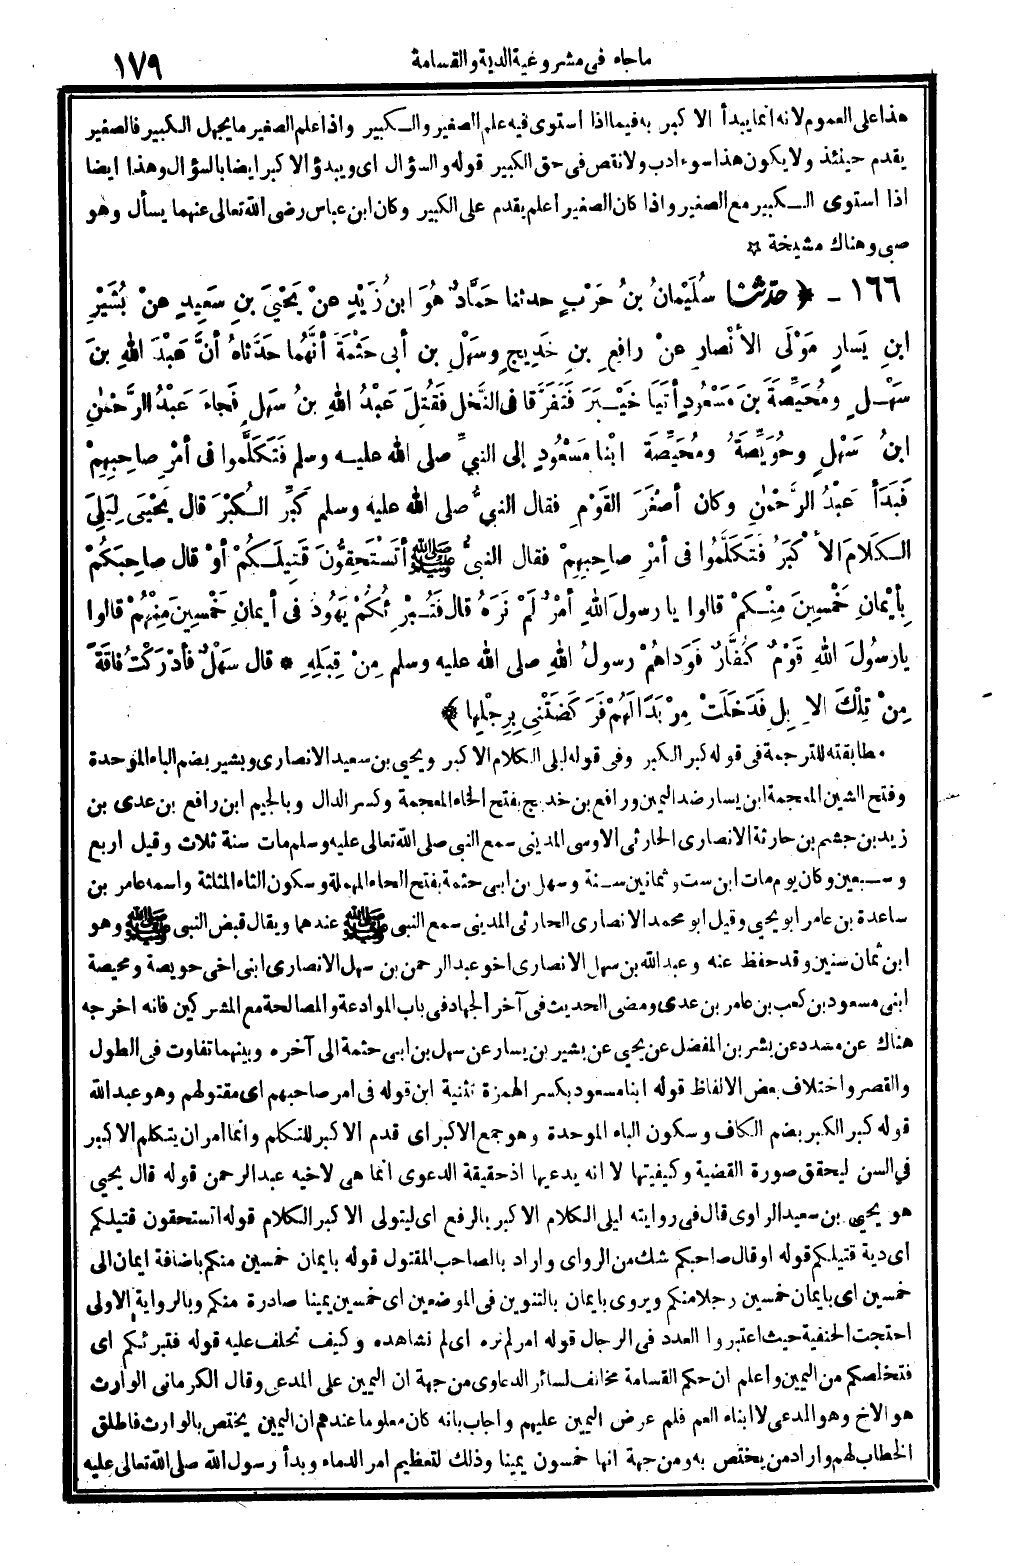 ما جاء فى مشروعية الدية والقسامة
١٧٩
هذا على العموم لانه انما يبدأ الاكبر به فيما اذا استوى فيه علم الصغير والكبير واذا علم الصغير ما يجهل الكبير فالصغير
يقدم حينئذ ولا يكون هذا سوء ادب ولا نقص فى حق الكبير قوله والسؤال اى ويبدؤ الاكبر ايضا بالسؤال وهذا ايضا
اذا استوى الكبير مع الصغير واذا كان الصغير أعلم يقدم على الكبير وكان ابن عباس رضى الله تعالى عنهما يسأل وهو
صبى وهناك مشيخة ☆
١٦٦ - ﴿ حدثنا سُلَيْمانُ بنُ حَرْبٍ حدثنا حَمَّادٌ هُوَ ابنُ زَيْدٍ عنْ يَحْيَى بنِ سَعِيدٍ عنْ بُشَيْرِ
ابنِ يَسارٍ مَوْلَى الأَنْصارِ عنْ رافِعِ بنِ خَدِيجٍ وسَهْلِ بن أبى حَثْمَةَ أنَّهُما حَدَّثاهُ أنَّ عَبْدَ اللهِ بنَ
سَهْلٍ ومُحَيِّصَةَ بنَ مَسْعُودٍ أتَيَا خَيْبَرَ فَتَفَرَّقا فى النَّخْلِ فَقُتِلَ عَبْدُ اللهِ بنُ سَهْلٍ فَجاءَ عَبْدُ الرَّحْمٰنِ
ابنُ سَهْلٍ وحُوَيِّصَةُ ومُحَيِّصَةُ ابْنا مَسْعُودٍ إلى النبيِّ صلى الله عليه وسلم فَتَكَلَّموا فى أمْرِ صاحِبِهِمْ
فَبَدَأ عَبْدُ الرَّحْمٰنِ وكان أصْغَرَ القَوْمِ فقال النبيُّ صلى الله عليه وسلم كَبِّرِ الكُبْرَ قال يَحْيَى لِيَلِيَ
الكَلَامَ الأكْبَرُ فَتَكَلَّمُوا فى أمْرِ صاحِبِهِمْ فقال النبيُّ ﷺ أتَسْتَحِقُّونَ قَتِيلَكُمْ أوْ قال صاحِبَكُمْ
بِأَيْمانِ خَمْسِينَ مِنْكُمْ قالوا يا رسولَ اللهِ أمْرٌ لَمْ نَرَهُ قال فَتُبْرِئُكُمْ يَهُودُ فى أيمانِ خَمْسِينَ مِنْهُمْ قالوا
يا رسُولَ اللهِ قَوْمٌ كُفَّارٌ فَوَداهُمْ رسولُ اللهِ صلى الله عليه وسلم مِنْ قِبَلِهِ * قال سَهْلٌ فأدْرَكْتُ ناقَةً
مِنْ تِلْكَ الإبِلِ فَدَخَلَتْ مِرْبَدًا لَهُمْ فَرَكَضَتْنِى بِرِجْلِها ﴾
مطابقته للترجمة فى قوله كبر الكبر وفى قوله ليلى الكلام الاكبر ويحيى بن سعيد الانصارى وبشير بضم الباء الموحدة
وفتح الشين المعجمة ابن يسار ضد اليمين ورافع بن خديج بفتح الخاء المعجمة وكسر الدال وبالجيم ابن رافع بن عدى بن
زيد بن جشم بن حارثة الانصارى الحارثى الاوسى المدينى سمع النبى صلى الله تعالى عليه وسلم مات سنة ثلاث وقيل اربع
وسبعين وكان يوم مات ابن ست وثمانين سنة وسهل بن ابى حثمة بفتح الحاء المهملة وسكون الثاء المثلثة واسمه عامر بن
ساعدة بن عامر ابو يحيى وقيل ابو محمد الانصارى الحارثى المدينى سمع النبى ﷺ عندهما ويقال قبض النبى ﷺ وهو
ابن ثمان سنين وقد حفظ عنه وعبد الله بن سهل الانصارى اخو عبد الرحمن بن سهل الانصارى ابنى اخى حويصة ومحيصة
ابنى مسعود بن كعب بن عامر بن عدى ومضى الحديث فى آخر الجهاد فى باب الموادعة والمصالحة مع المشركين فانه اخرجه
هناك عن مسدد عن بشر بن المفضل عن يحيى عن بشير بن يسار عن سهل بن ابى حثمة الى آخره وبينهما تفاوت فى الطول
والقصر واختلاف بعض الالفاظ قوله ابنا مسعود بكسر الهمزة تثنية ابن قوله فى امر صاحبهم اى مقتولهم وهو عبد الله
قوله كبر الكبر بضم الكاف وسكون الباء الموحدة وهو جمع الاكبر اى قدم الاكبر للتكلم وانما امر ان يتكلم الاكبر
فى السن ليحقق صورة القضية وكيفيتها لا انه يدعيها اذ حقيقة الدعوى انما هى لاخيه عبد الرحمن قوله قال يحيى
هو يحيى بن سعيد الراوى قال فى روايته ليلى الكلام الاكبر بالرفع اى ليتولى الاكبر الكلام قوله اتستحقون قتيلكم
اى دية قتيلكم قوله او قال صاحبكم شك من الراوى واراد بالصاحب المقتول قوله بايمان خمسين منكم باضافة ايمان الى
خمسين اى بايمان خمسين رجلا منكم ويروى بايمان بالتنوين فى الموضعين اى خمسين يمينا صادرة منكم وبالرواية الاولى
احتجت الحنفية حيث اعتبروا العدد فى الرجال قوله امر لم نره اى لم نشاهده وكيف نحلف عليه قوله فتبرئكم اى
فتخلصكم من اليمين واعلم ان حكم القسامة مخالف لسائر الدعاوى من جهة ان اليمين على المدعى وقال الكرمانى الوارث
هو الاخ وهو المدعى لا ابناء العم فلم عرض اليمين عليهم واجاب بانه كان معلوما عندهم ان اليمين يختص بالوارث فاطلق
الخطاب لهم واراد من يختص به ومن جهة انها خمسون يمينا وذلك لتعظيم امر الدماء وبدأ رسول الله صلى الله تعالى عليه